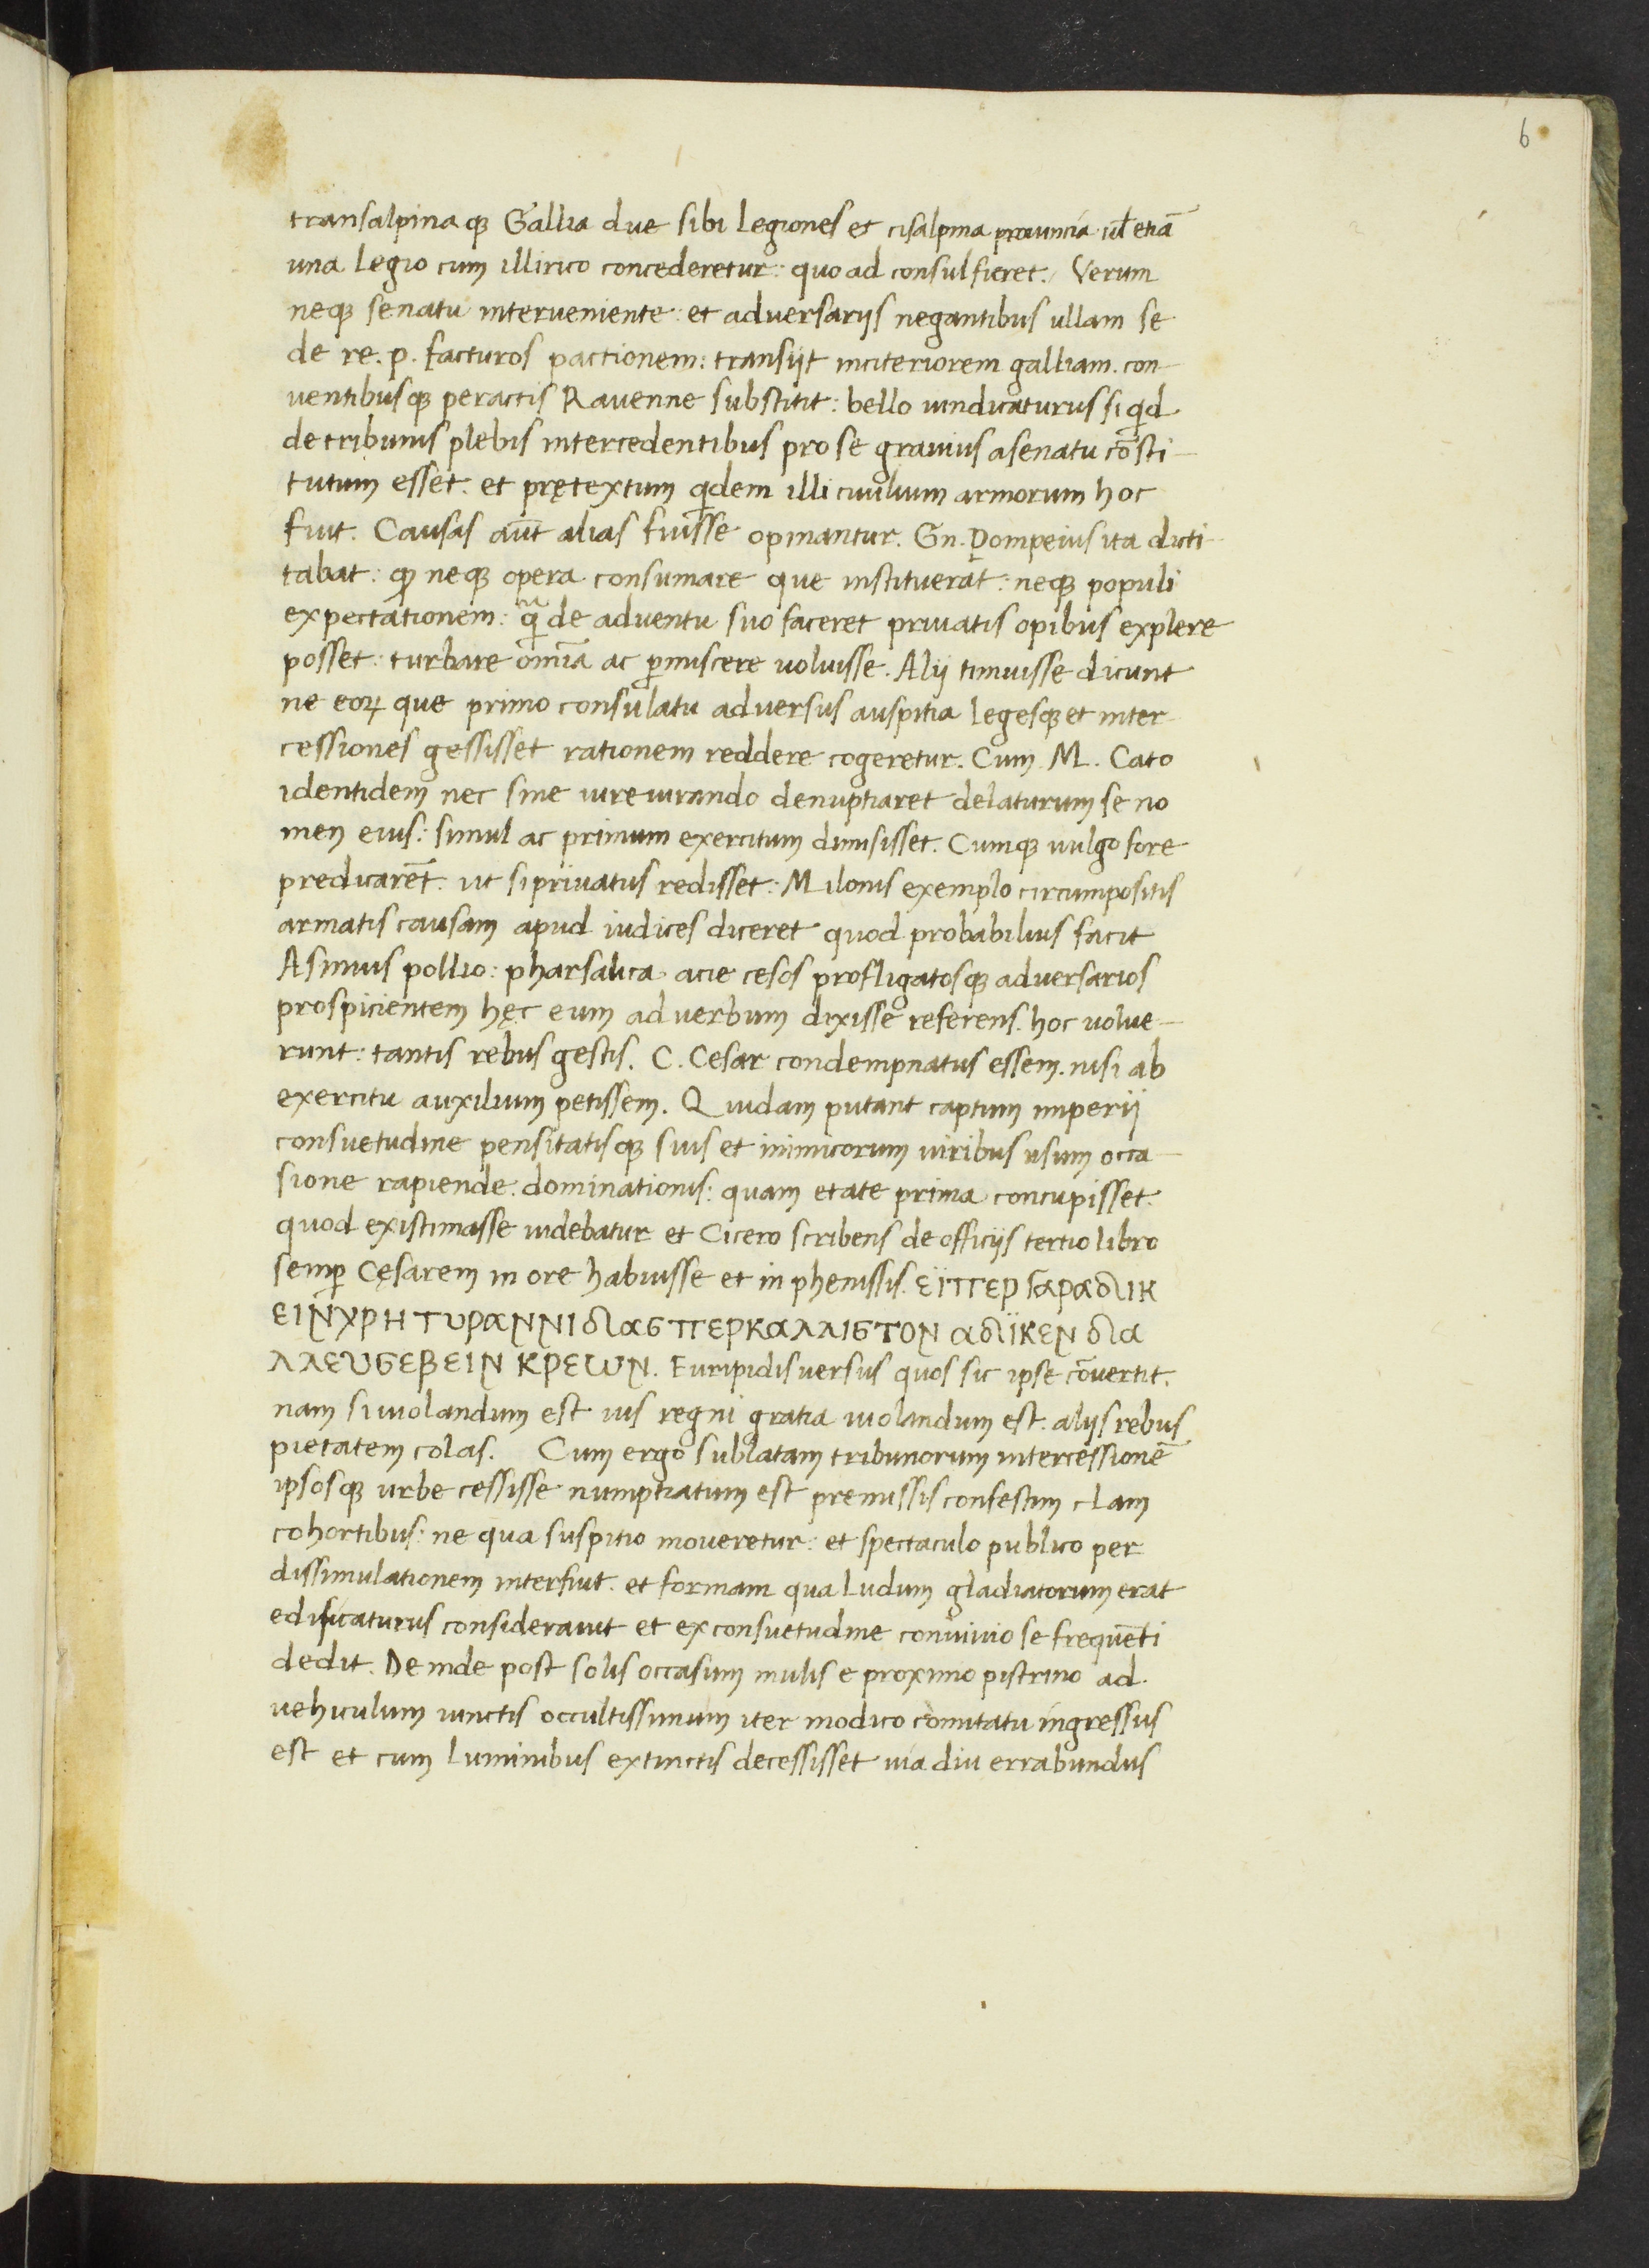 6
transalpinaqꝫ Gallia due sibi legiones et cisalpina prouincia ul̄ etiā
una legio cum illirico concederetur: quo ad consul fieret. Verum
neqꝫ senatu interueniente: et adversarijs negantibus ullam se
de re. p. facturos pactionem: transijt inciteriorem galliam. con-
uentibusqꝫ peractis Rauenne substitit: bello uindicaturus si qd̄
de tribunis plebis intercedentibus pro se grauius asenatu cōsti-
tutum esset. et prętextum qdem illi ciuilium armorum hoc
fuit. Causas aūt alias fuisse opinantur. Gn. Pompeius ita dicti-
tabat: ꝙ neqꝫ opera consumare que instituerat: neqꝫ populi
expectationem: q̃ de adventu suo faceret priuatis opibus explere
posset: turbare om̄ia ac ꝑmiscere uoluisse. Alij timuisse dicunt
ne eoꝝ que primo consulatu adversus auspitia legesqꝫ et inter-
cessiones gessisset rationem reddere cogeretur. Cum M. Cato
identidem nec sine iureiurando denuptiaret delaturum se no
men eius: simul ac primum exercitum dimisisset. Cumqꝫ uulgo fore
predicarēt. ut si priuatus redisset: Milonis exemplo circumpositis
armatis causam apud iudices diceret quod probabilius facit
Asinius pollio: pharsalica acie cesos profligatosqꝫ adversarios
prospicientem hęc eum ad verbum dixisse referens. hoc uolue-
runt: tantis rebus gestis. C. Cesar condempnatus essem. nisi ab
exercitu auxilium petissem. Quidam putant captum imperij
consuetudine pensitatisqꝫ suis et inimicorum uiribus usum occa-
sione rapiende dominationis: quam etate prima concupisset.
quod existimasse uidebatur et Cicero scribens de officijs tertio libro
semꝑ Cęsarem in ore habuisse et in phenissis. ΕΪΠΕΡ ΓΑΡΑΔΙΚ
ΕΙΝ ΧΡΗ ΤΥΡΑΝΝΙΔΙΑϹ ΠΕΡΚΑΛΛΙϹΤΟΝ ΑΔΪΚΕΝ ΔΙΑ
ΛΛΕΥϹΕΒΕΙΝ ΚΡΕΩΝ. Euripidis uersus quos sic ipse cōuertit.
nam si uiolandum est ius regni gratia uiolandum est. alijs rebus
pietatem colas. Cum ergo sublatam tribunorum intercessionē
ipsosqꝫ urbe cessisse numptiatum est premissis confestim clam
cohortibus: ne qua suspitio moueretur: et spectaculo publico per
dissimulationem interfuit. et formam qua ludum gladiatorum erat
edificaturus considerauit et ex consuetudine conuiuio se frequēti
dedit. Deinde post solis occasum mulis e proximo pistrino ad
uehiculum iunctis occultissimum iter modico comitatu ingressus
est et cum luminibus extinctis decessisset uia diu errabundus